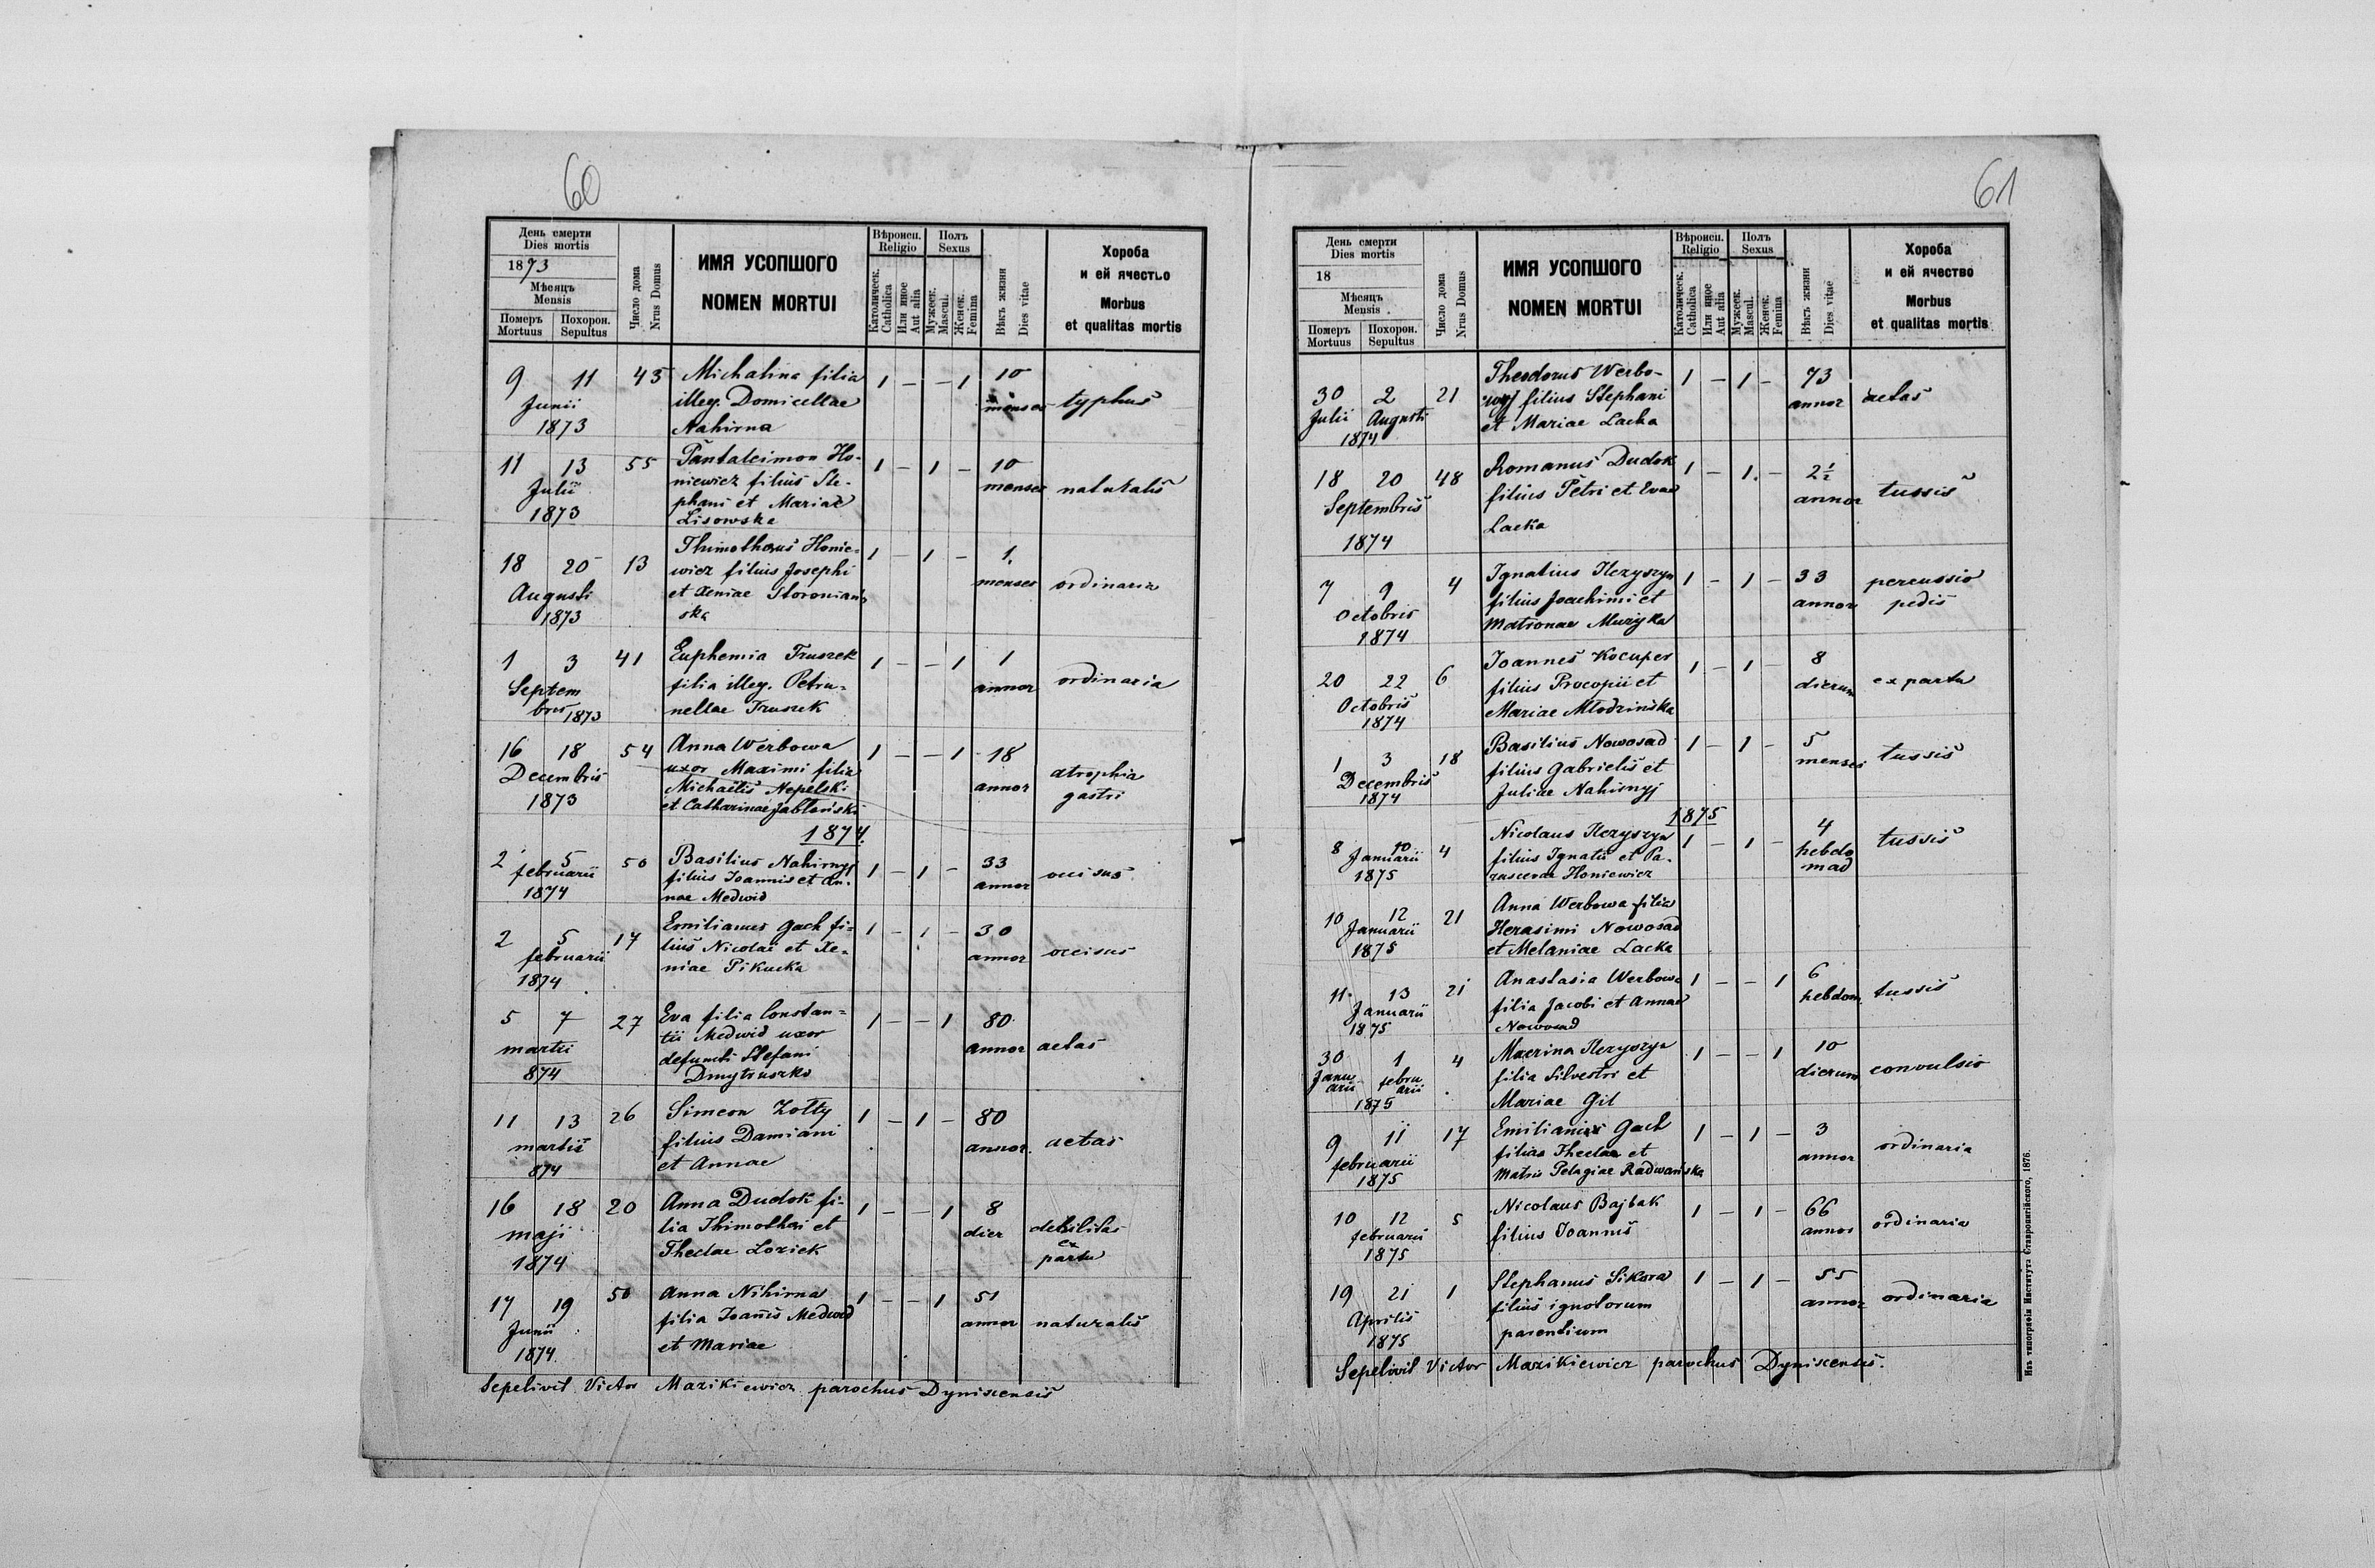 60
День смерти
Dies mortis
1873
Мѣсяцъ
Mensis
Померъ Похорон.
Mortuus Sepultus
Число дома
Nrus Domus
ИМЯ УСОПШОГО
NOMEN MORTUI
Вѣроисп.
Religio
Католическ.
Catholica
Или иное
Aut alia
Полъ
Sexus
Мужеск.
Mascul.
Женск.
Femina
Вѣкъ жизни
Dies vitae
Хороба
и ей ячество
Morbus
et qualitas mortis
9 11 45 Michalina filia 1 – – 1 10
Junii illeg. Domicellae menses typhus
1873 Nahirna
11 13 55 Pantaleimon Ho- 1 – 1 – 10
Julii niewicz filius Ste- menses naturalis
1873 phani et Mariae
Lisowska
18 20 13 Thimotheus Honie- 1 – 1 – 1
Augusti wicz filius Josephi menses ordinaria
1873 et Xeniae Storoniań
ska
1 3 41 Euphemia Truszek 1 – – 1 1
Septem filia illeg. Petru- annor ordinaria
bris 1873 nellae Truszek
16 18 54 Anna Werbowa 1 – – 1 18
Decembris uxor Maximi filia atrophia
1873 Michaelis Nepelski annor gastri
et Catharinae Jabłański
1874.
2 5 50 Basilius Nahirnyj 1 – 1 – 33
februarii filius Joannis et An- annor occisus
1874 nae Medwid
2 5 17 Emilianus Gach fi- 1 – 1 – 30
februarii lius Nicolai et Xe- annor occisus
1874 niae Pikucka
5 7 27 Eva filia Constan- 1 – – 1 80
martii tii Medwid uxor annor aetas
874 defuncti Stefani
Dmytruszko
11 13 26 Simeon Zołty 1 – 1 – 80
martii filius Damiani annor. aetas
874 et Annae
16 18 20 Anna Dudok fi- 1 – – 1 8
maji lia Thimothei et dier debilitas
1874 Theclae Loziek ex
partu
17 19 50 Anna Nihirna 1 – – 1 51
Junii filia Joannis Medwid annor naturalis
1874. et Mariae
Sepelivit Victor Mazikiewicz parochus Dyniscensis
61
День смерти
Dies mortis
18
Мѣсяцъ
Mensis
Померъ Похорон.
Mortuus Sepultus
Число дома
Nrus Domus
ИМЯ УСОПШОГО
NOMEN MORTUI
Вѣроисп.
Religio
Католическ.
Catholica
Или иное
Aut alia
Полъ
Sexus
Мужеск.
Mascul.
Женск.
Femina
Вѣкъ жизни
Dies vitae
Хороба
и ей ячество
Morbus
et qualitas mortis
Theodorus Werbo- 1 – 1 – 73
30 2 21 wyj filius Stephani annor aetas
Julii Augusti et Mariae Lacka
1874
18 20 48 Romanus Dudok 1 – 1. – 2½
Septembris filius Petri et Evae annor tussis
1874 Lacka
7 9 4 Ignatius Ilczyszyn 1 – 1 – 33 percussio
Octobris filius Joachimi et annor pedis
1874 Matronae Muzyka
20 22 6 Joannes Kocuper 1 – 1 – 8
Octobris filius Procopii et dierum ex partu
1874 Mariae Młodzińska
1 3 18 Basilius Nowosad 1 – 1 – 5
Decembris filius Gabrielis et menses tussis
1874 Juliae Nahirnyj
1875
8 10 4 Nicolaus Ilczyszyn 1 – 1 – 4 tussis
Januarii filius Ignatii et Pa- hebdo
1875 rascevae Honiewicz mad
10 12 21 Anna Werbowa filia
Januarii Herasimi Nowosad
1875 et Melaniae Lacka
11 13 21 Anastasia Werbowa 1 – – 1 6
Januarii filia Jacobi et Annae hebdom tussis
1875 Nowosad
30 1 4 Macrina Ilczyszyn 1 – – 1 10
Janu febru filia Silvestri et dierum convulsio
arii arii
1875 Mariae Gil
9 11 17 Emilianus Gach 1 – 1 – 3
februarii filius Theclae et annor ordinaria
1875 Matris Pelagiae Radwańska
10 12 5 Nicolaus Bajbak 1 – 1 – 66
februarii filius Joannis annor ordinaria
1875
19 21 1 Stephanus Sikora 1 – 1 – 55
Aprilis filius ignotorum annor ordinaria
1875 parentium
Sepelivit Victor Mazikiewicz parochus Dyniscensis.
Изъ типографіи Института Ставропигійского, 1876.